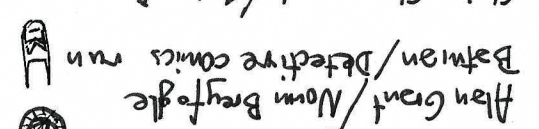 Alan Grant/Norm Breyfogle
Batman/Detective comics run